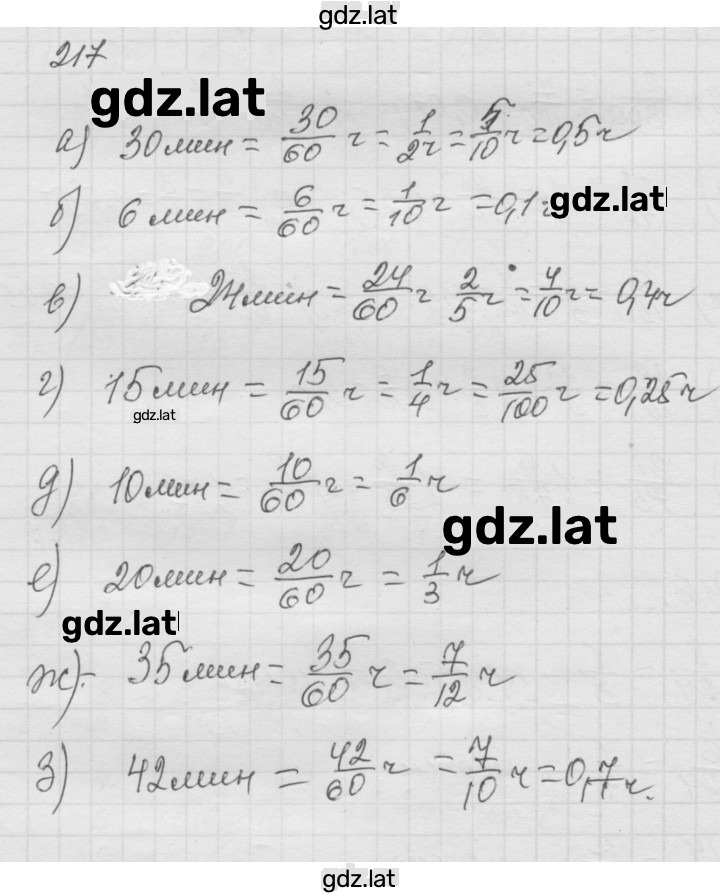 gdz.lat
217
gdz.lat
а) 30 мин = 30/60 ч = 1/2ч = 5/10 ч = 0,5 ч
б) 6 мин = 6/60 ч = 1/10 ч = 0,1 ч gdz.lat
в) 24 мин = 24/60 ч 2/5 ч = 4/10 ч = 0,4 ч
г) 15 мин = 15/60 ч = 1/4 ч = 25/100 ч = 0,25 ч
gdz.lat
д) 10 мин = 10/60 ч = 1/6 ч
gdz.lat
е) 20 мин = 20/60 ч = 1/3 ч
gdz.lat
ж) 35 мин = 35/60 ч = 7/12 ч
з) 42 мин = 42/60 ч = 7/10 ч = 0,7 ч.
gdz.lat